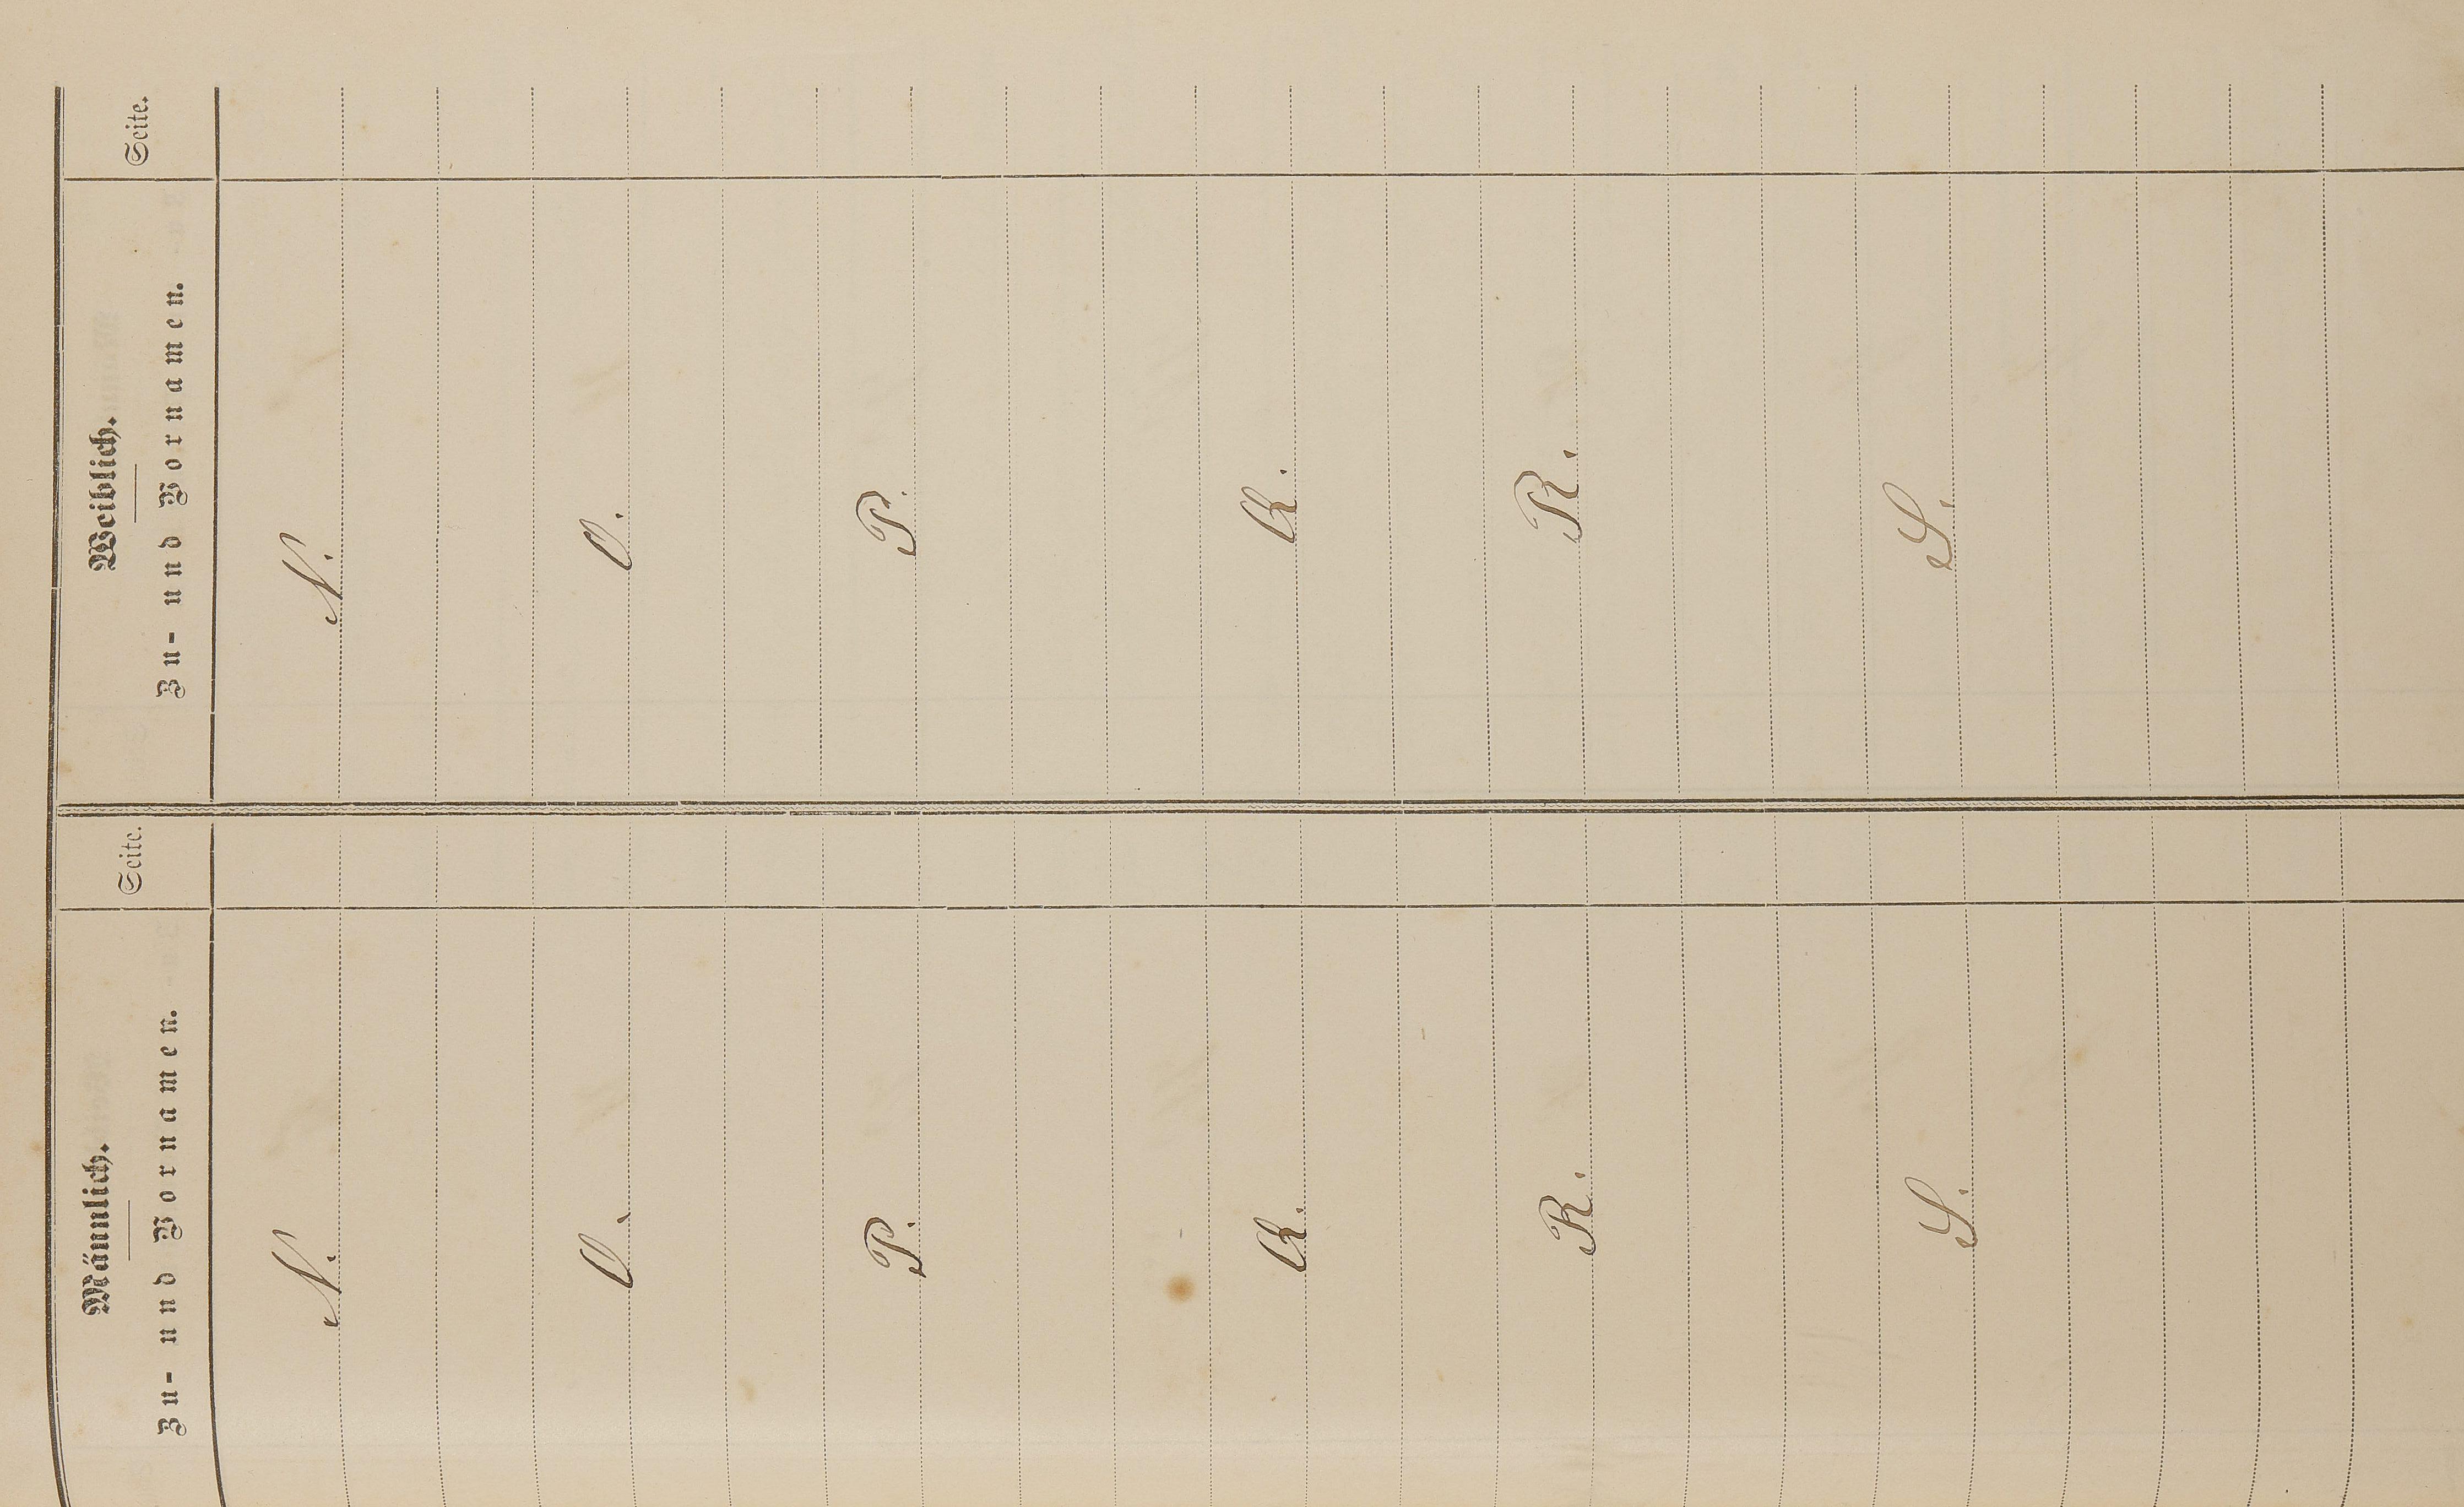 Männlich. Weiblich.
Zu- und Vornamen. Seite. Zu- und Vornamen. Seite.
N. N.
O. O.
P. P.
Q. Q.
R. R.
S. S.